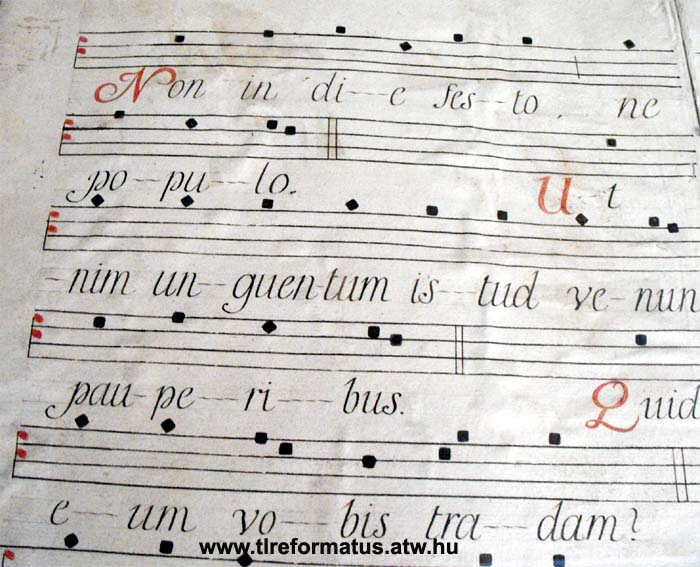 Non in di--e fes--to, ne
po--pu--lo. Ut
-nim un--guen-tum is--tud ve-nun
pau-pe--ri--bus. Quid
e--um vo--bis tra--dam?
www.tlreformatus.atw.hu